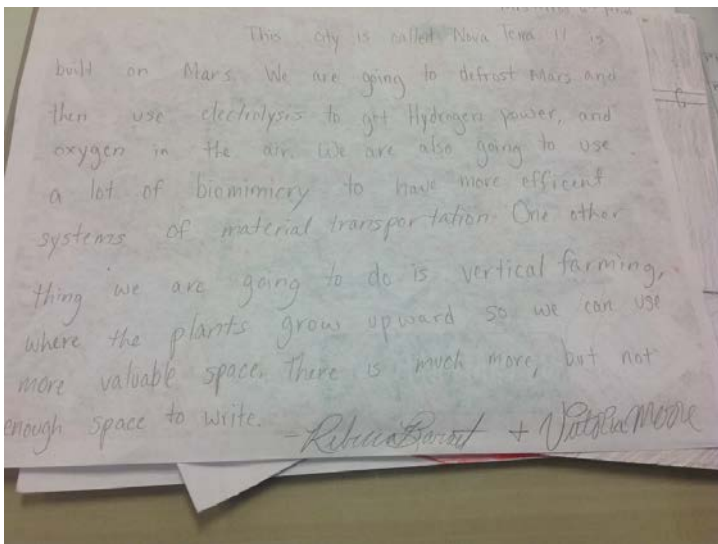 This city is called Nova Terra It is
built on Mars. We are going to defrost Mars and
then use electrolysis to get Hydrogen power, and
oxygen in the air. We are also going to use
a lot of biomimicry to have more efficent
systems of material transportation. One other
thing we are going to do is vertical farming,
where the plants grow upward so we can use
more valuable space. There is much more, but not
enough space to write.
- Rebecca + Victoria Moore